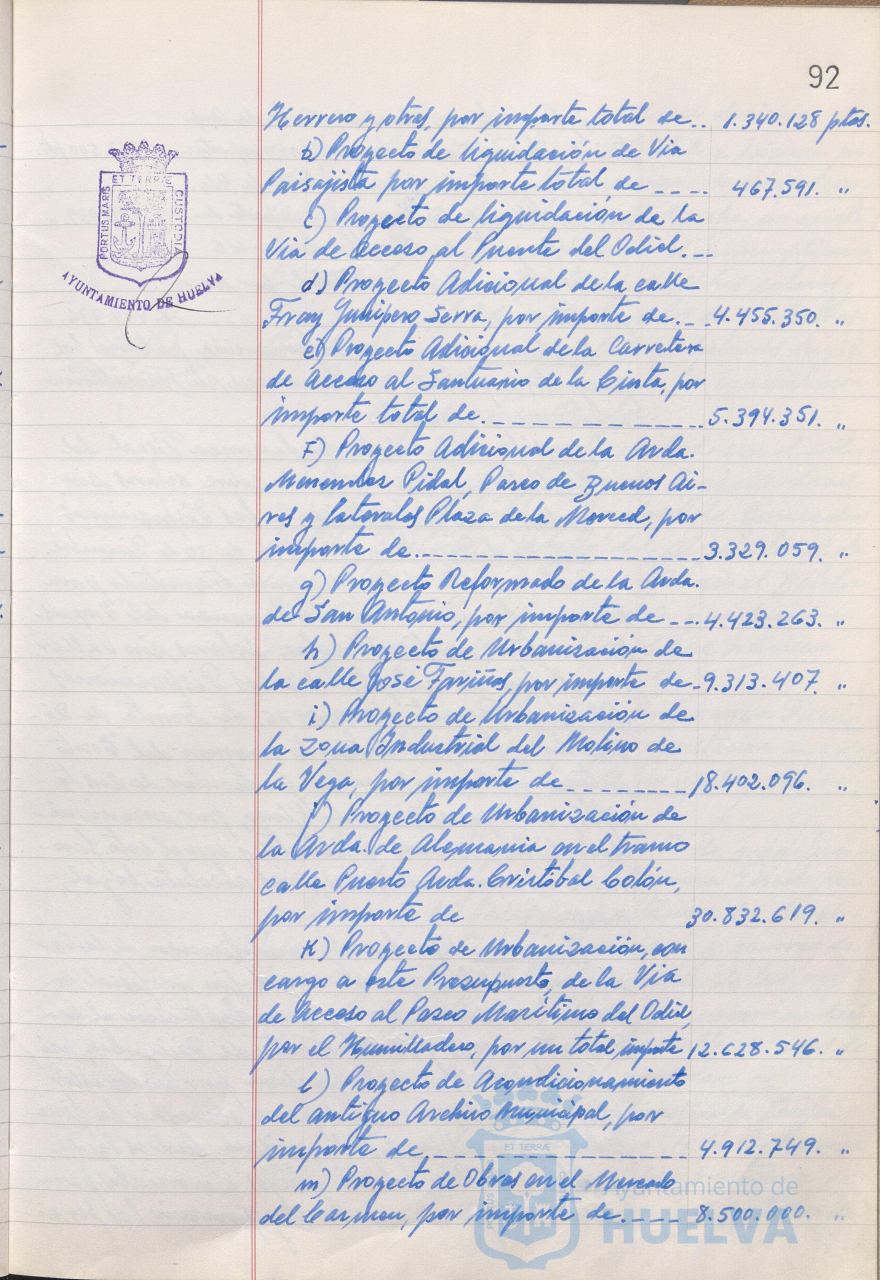 92
Herrero y otros, por importe total de.. 1.340.128 ptas.
b) Proyecto de liquidación de Via
Paisajista por importe total de ---- 467.591. "
c) Proyecto de liquidación de la
Via de acceso al Puente del Odiel.--
d) Proyecto Adicional de la calle
Fray Junípero Serra, por importe de.-- 4.455.350. "
e) Proyecto Adicional de la Carretera
de acceso al Santuario de la Cinta, por
importe total de.------------ 5.394.351. "
F) Proyecto Adicional de la Avda.
Menendez Pidal, Paseo de Buenos Ai-
res y laterales Plaza de la Merced, por
importe de.---------------- 3.329.059. "
g) Proyecto Reformado de la Avda.
de San Antonio, por importe de --- 4.423.263. "
h) Proyecto de Urbanización de
la calle José Fariñas, por importe de - 9.313.407. "
i) Proyecto de Urbanización de
la Zona Industrial del Molino de
la Vega, por importe de -------- 18.402.096. "
j) Proyecto de Urbanización de
la Avda. de Alemania en el tramo
calle Puerto Avda. Cristóbal Colón,
por importe de 30.832.619. "
K) Proyecto de Urbanización, con
cargo a este Presupuesto, de la Via
de acceso al Paseo Marítimo del Odiel,
por el Humilladero, por un total importe 12.628.546. "
l) Proyecto de Acondicionamiento
del antiguo Archivo Municipal, por
importe de.--------------- 4.912.749. "
m) Proyecto de Obras en el Mercado
del Carmen, por importe de.---- 8.500.000. "
PORTUS MARIS ET TERRÆ CUSTODIA
AYUNTAMIENTO DE HUELVA
ET TERRÆ
Ayuntamiento de
HUELVA